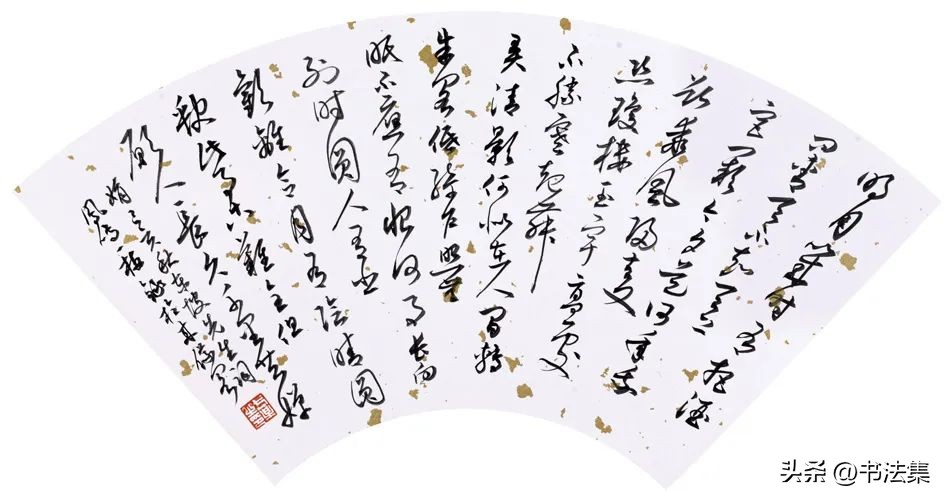 明月几时有把酒
问青天不知天上
宫阙今夕是何年我
欲乘风归去又
恐琼楼玉宇高处
不胜寒起舞
弄清影何似在人间转
朱阁低绮户照无
眠不应有恨何事长向
别时圆人有悲
欢离合月有阴晴圆
缺此事古难全但
愿人长久千里共婵
娟 己亥秋东坡先生词
头条 @书法集